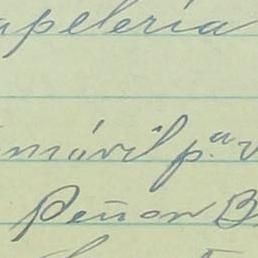 apelería
móvil p.ª v
Peñon B